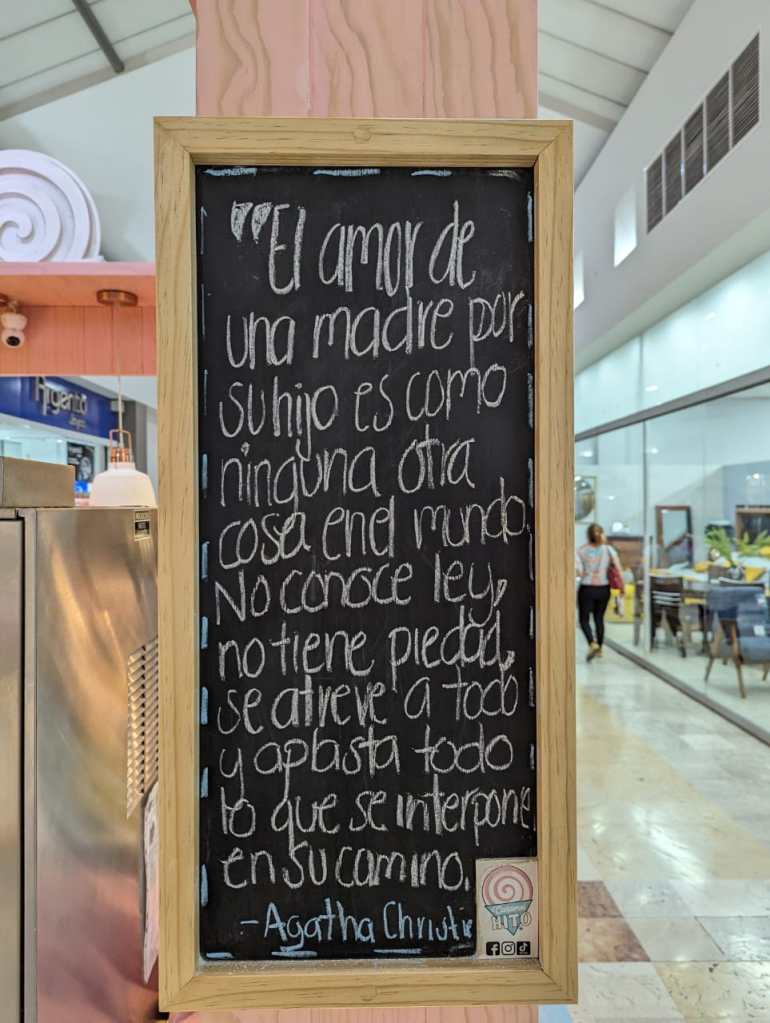 "El amor de
una madre por
su hijo es como
ninguna otra
cosa en el mundo.
No conoce ley,
no tiene piedad,
se atreve a todo
y aplasta todo
lo que se interpone
en su camino.
-Agatha Christie
HITO
Argento